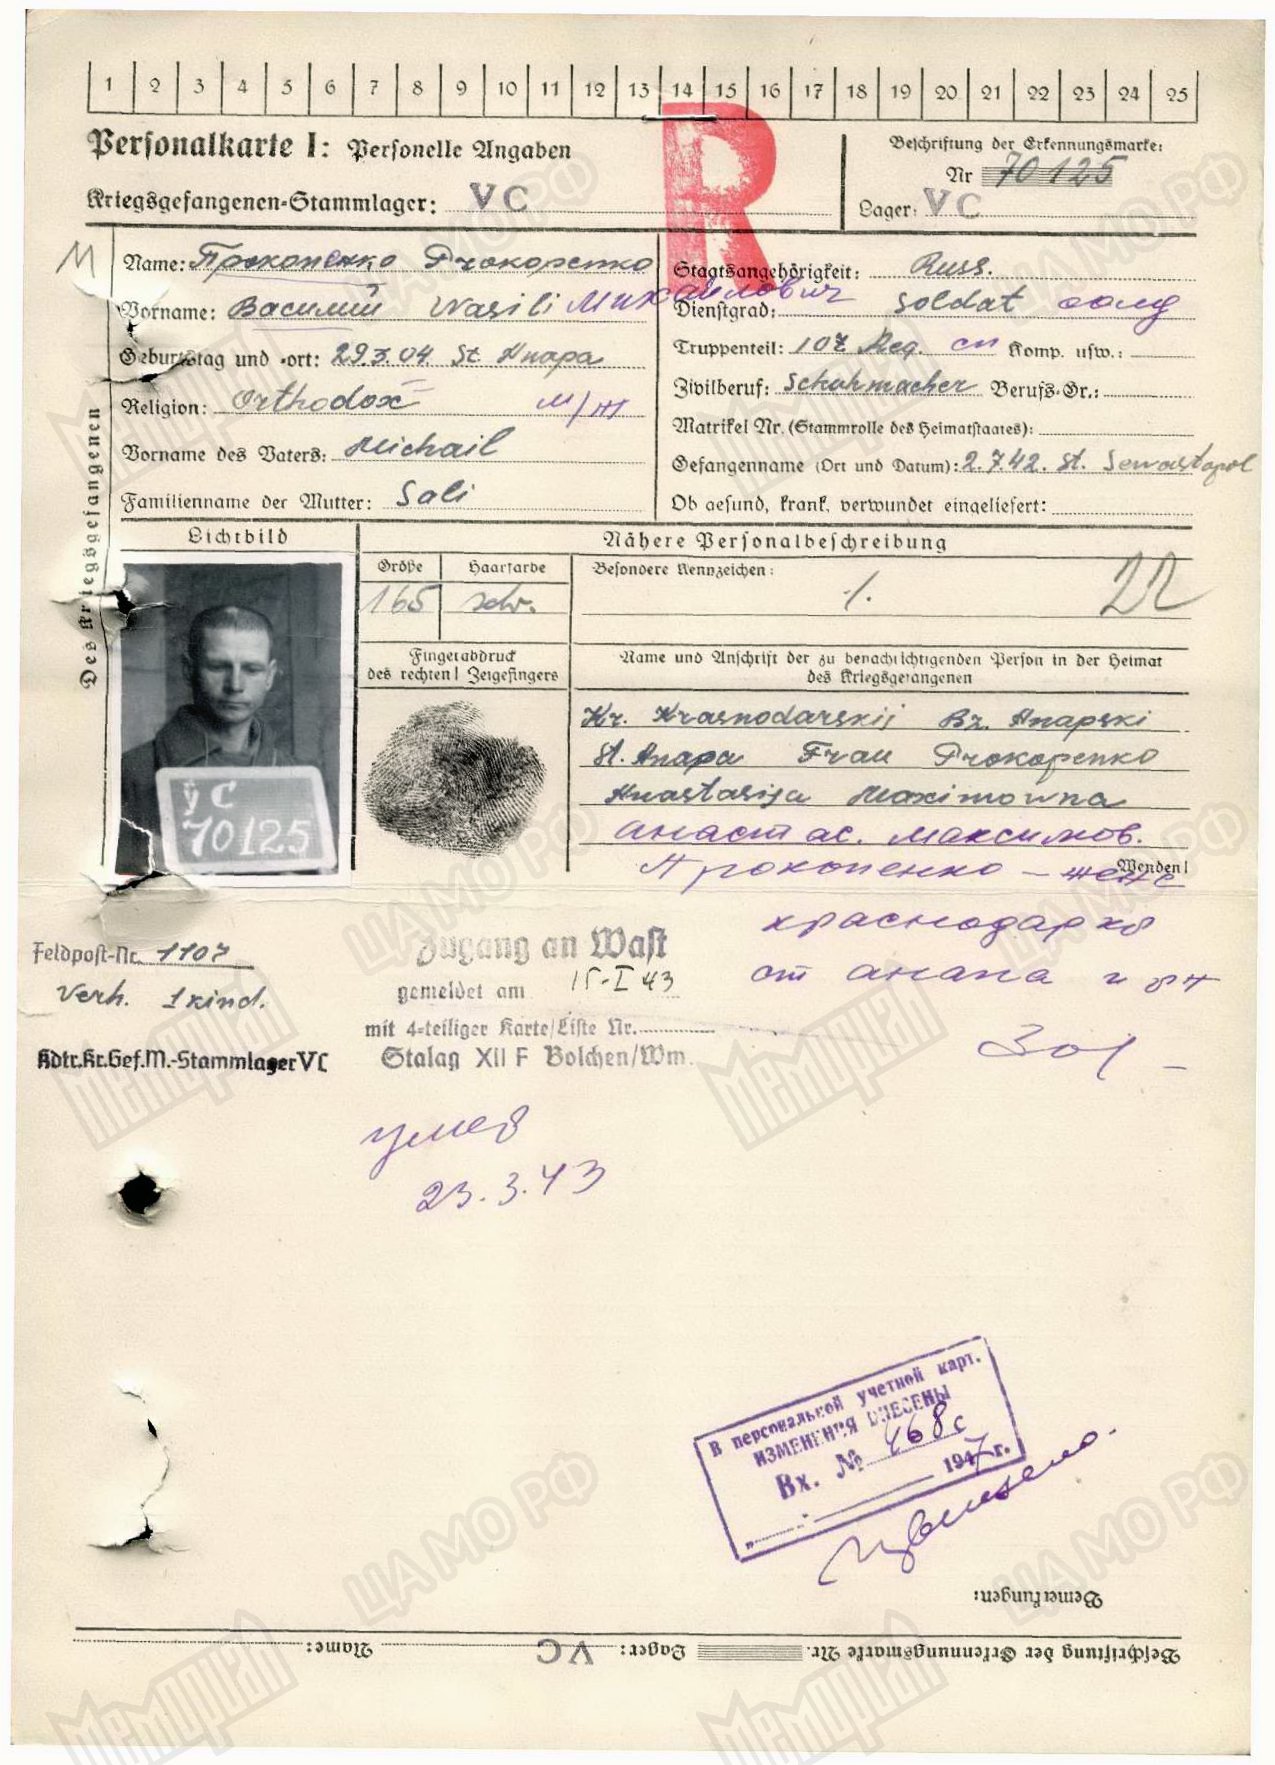 1 2 3 4 5 6 7 8 9 10 11 12 13 14 15 16 17 18 19 20 21 22 23 24 25
R
Personalkarte I: Personelle Angaben
Kriegsgefangenen-Stammlager: VC
Beschriftung der Erkennungsmarke:
Nr 70125
Lager: VC
М
Des Kriegsgefangenen
Name: Прокопенко Prokopenko
Vorname: Василий Wasili Михайлович
Geburtstag und -ort: 29.3.04. St. Anapa
Religion: Orthodox м/ж
Vorname des Vaters: Michail
Familienname der Mutter: Sali
Staatsangehörigkeit: Russ.
Dienstgrad: Soldat солд
Truppenteil: 107 Reg. сп Komp. usw.:
Zivilberuf: Schuhmacher Berufs-Gr.:
Matrikel Nr. (Stammrolle des Heimatstaates):
Gefangenname (Ort und Datum): 2.7.42. St. Sewastopol
Ob gesund, krank, verwundet eingeliefert:
Lichtbild
ѴC
70125
Nähere Personalbeschreibung
Größe Haarfarbe Besondere Kennzeichen:
165 schw. ./. 22
Fingerabdruck
des rechten! Zeigefingers
Name und Anschrift der zu benachrichtigenden Person in der Heimat
des Kriegsgefangenen
Kr. Krasnodarskij Bz. Anapski
St. Anapa Frau Prokopenko
Anastasija Maximowna
Анастас. Максимов.
Прокопенко – жене
Wenden!
Краснодарск
ст Анапа
Feldpost-Nr. 1107
Verh. 1 kind.
Kdtr.Kr.Gef.M.-Stammlager VC
Zugang an Wast
gemeldet am 15-I 43
mit 4-teiliger Karte/Liste Nr.
Stalag XII F Bolchen/Wm.
умер
23.3.43
В персональной учетной карт.
ИЗМЕНЕНИЯ ВНЕСЕНЫ
Вх. № 468с
1947 г.
Bemerkungen:
Beschriftung der Erkennungsmarke Nr. Lager: VC Name:
Мемориал
ЦАМО РФ